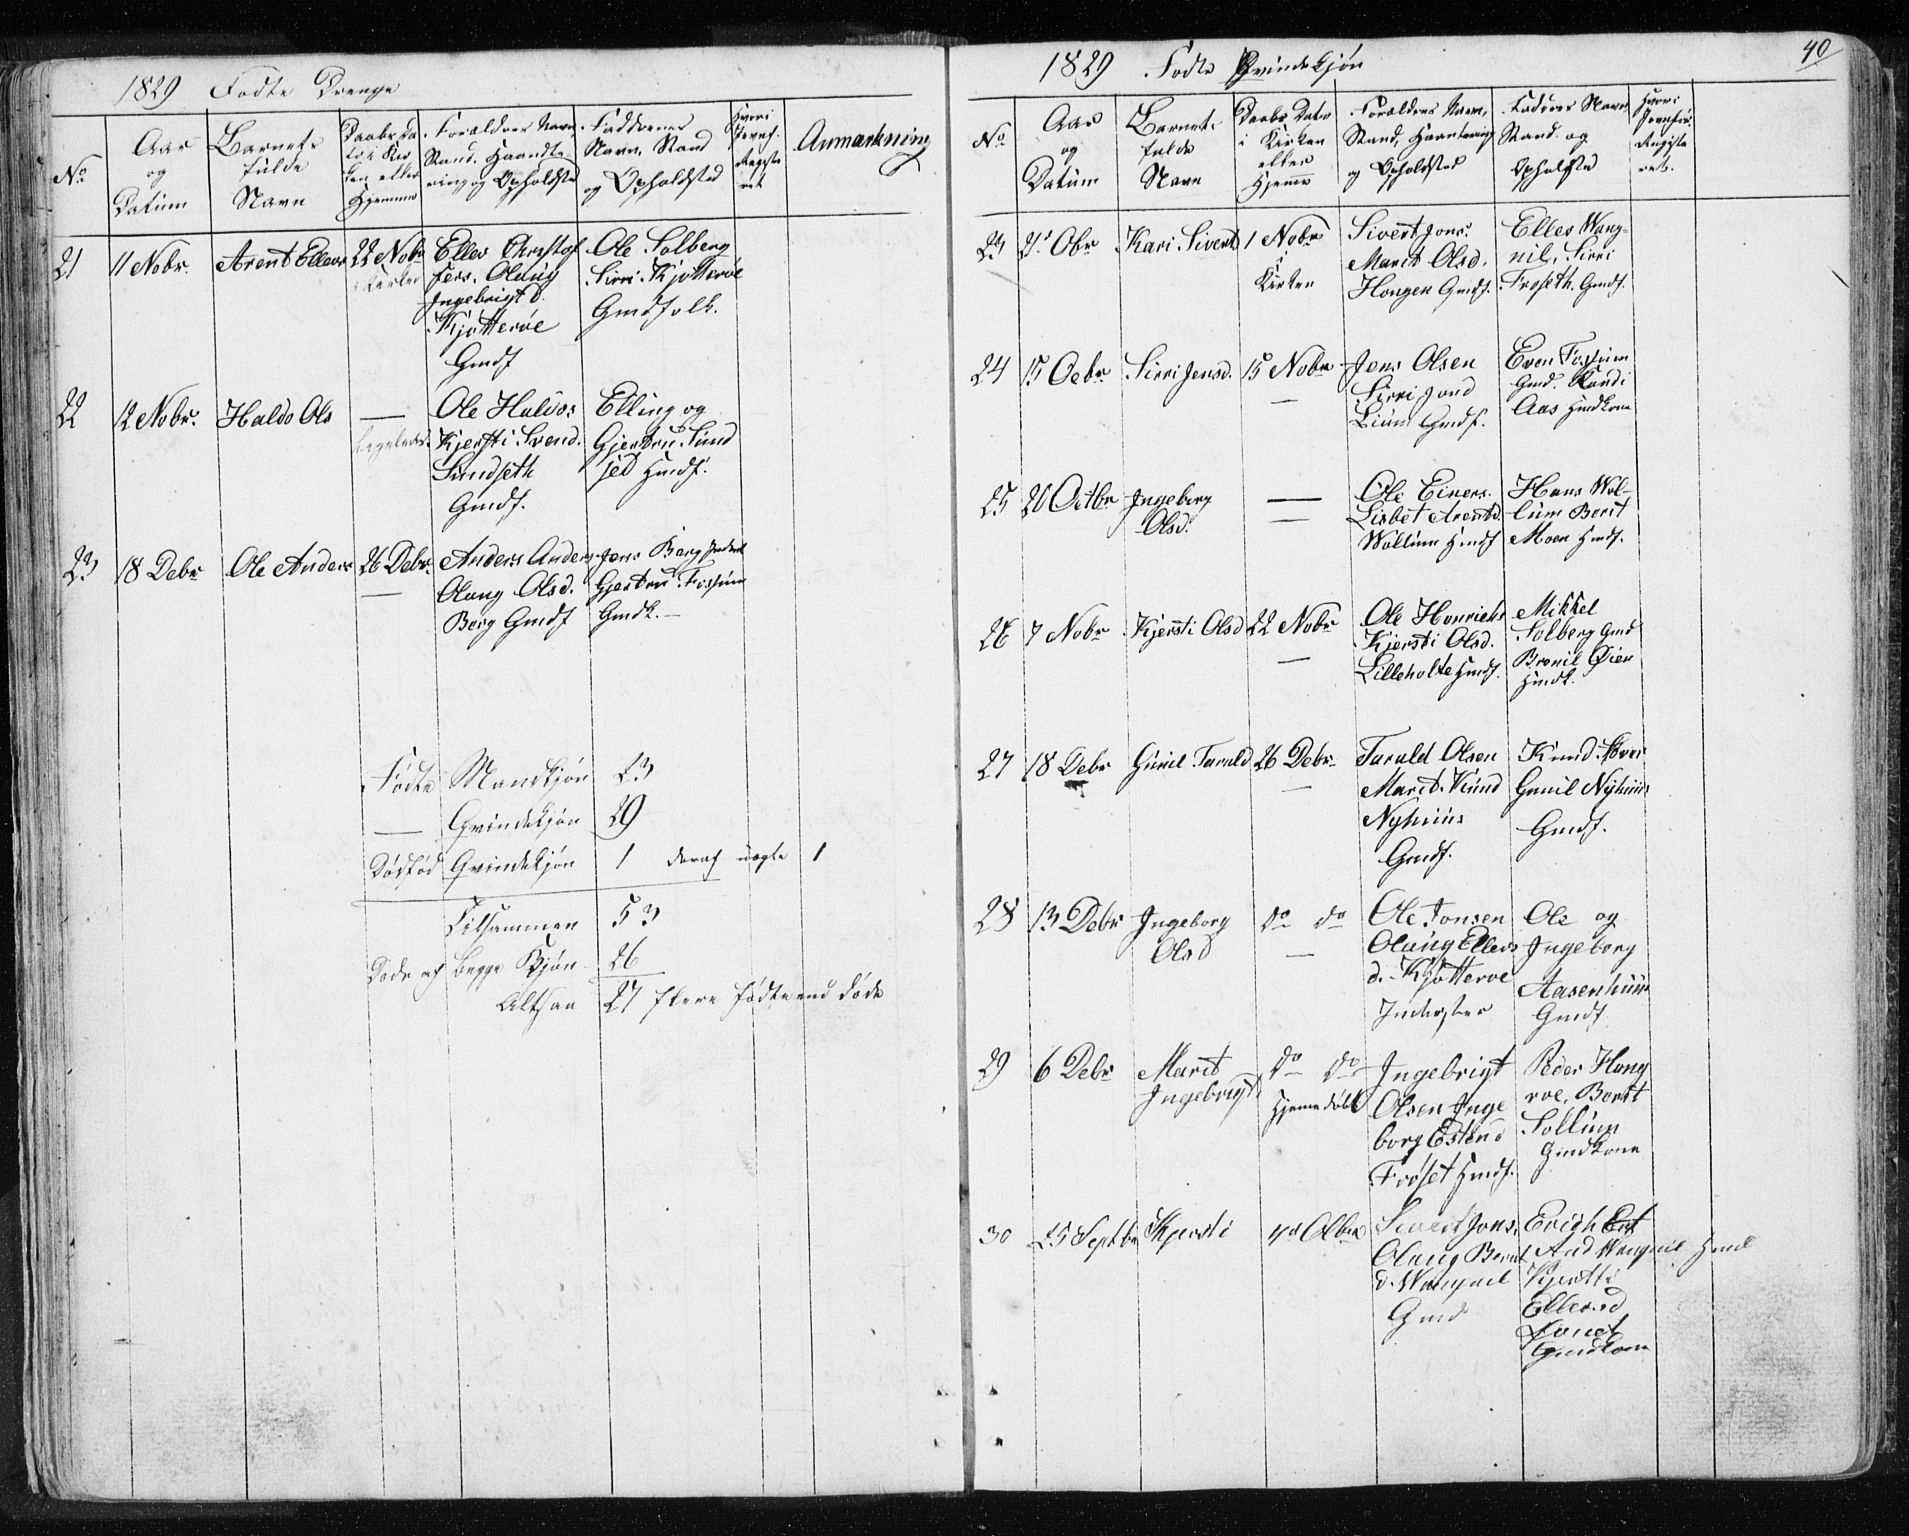 1829 Fødte Drenge
No
Aar
og
Datum
Barnets
fulde
Navn
Daabs Da
to i Kir
ken eller
Hjemme
Forældres Navn
Stand, Haandte
ring og Opholdsted
Faddernes
Navn, Stand
og Opholdsted
Hvori
Jevnf.
Registe
ret
Anmærkning
21
11 Nobr.
Arent Ellevs
22 Nobr
i Kirken
Ellev Christof
fers. Olaug
Ingebrigt d.
Kjøtterøe
Gmdf
Ole Solberg
Sirri Kjøtterøe
Gmdfolk.
22
12 Nobr.
Haldo Ols
—
Ole Halvos
Kjersti Svend.
Sundseth
Gmdf.
Elling og
Gjertru Sund
set Hmdf.
23
18 Debr
Ole Anders
26 Debr.
—
Anders Anders
Olaug Olsd.
Borg Gmdf
Jens Borg
Gjertru Fossum
Gmdk.
Fødte Mandkjøn 23
— Qvindekjøn 29
Dødfød Qvindekjøn 1 deraf uægte 1
Tilsammen 53
Døde af begge Kjøn 26
Altsaa 27 flere fødte end døde
40
1829 Fødte Qvindekjøn
No
Aar
og
Datum
Barnets
fulde
Navn
Daabs Dato
i Kirken
eller
Hjemme
Forældres Navn,
Stand, Haantering
og Opholdsted
Faderes Navn
Stand og
Opholdsted
Hvori
Jevnfør.
Registe
ret.
23
21 Obr
Kari Siverts
1 Nobr
i
Kirken
Sivert Jons:
Marit Olsd.
Hongen Gmdf.
Elles Wang-
nil, Sirri
Froseth. Gmdf.
24
15 Oebr
Sirri Jensd.
15 Nobr
—
Jens Olsen
Sirri Jond
Lium Gmdf.
Even Fossum
Gmd. Randi
Aas Hmdkone
25
20 Octbr
Ingeberg
Olsd.
—
—
Ole Einers.
Lisbet Arentd.
Wollum Hmdf
Hans Wol-
lum Berit
Moen Hmdf.
26
7 Nobr
Kjersti Olsd
22 Nobr
—
Ole Henrichs
Kjersti Olsd.
Lilleholte Hmdf.
Mikkel
Solberg Gmd
Brenil Øien
Hmdk.
27
18 Debr
Gunil Tarald
26 Debr
—
Tarald Olsen
Marit Knud
Nyhuus
Gmdf.
Knud
Gunil Nyhuus
Gmdf.
28
13 Debr
Ingeborg
Olsd
do do
—
Ole Jonsen
Olaug Ellevs
d. Kjøtteroe
Inderster
Ole og
Ingeborg
Aasenhuus
Gmdf
29
6 Debr
Marit
Ingebrigt
do do
Hjemedøbt
Ingebrigt
Olsen Inge
borg Estend
Frøset Hmdf.
Peder Haug
roe, Berit
Sollium
Gmdkone
30
25 Septbr
Kjersti
4de Olbr
Sivert Jons.
Olaug Bernt
d. Wangnil
Gmd
Erich
Wangnil Hmd
Kjersti
Ellevsd
Gmdkone